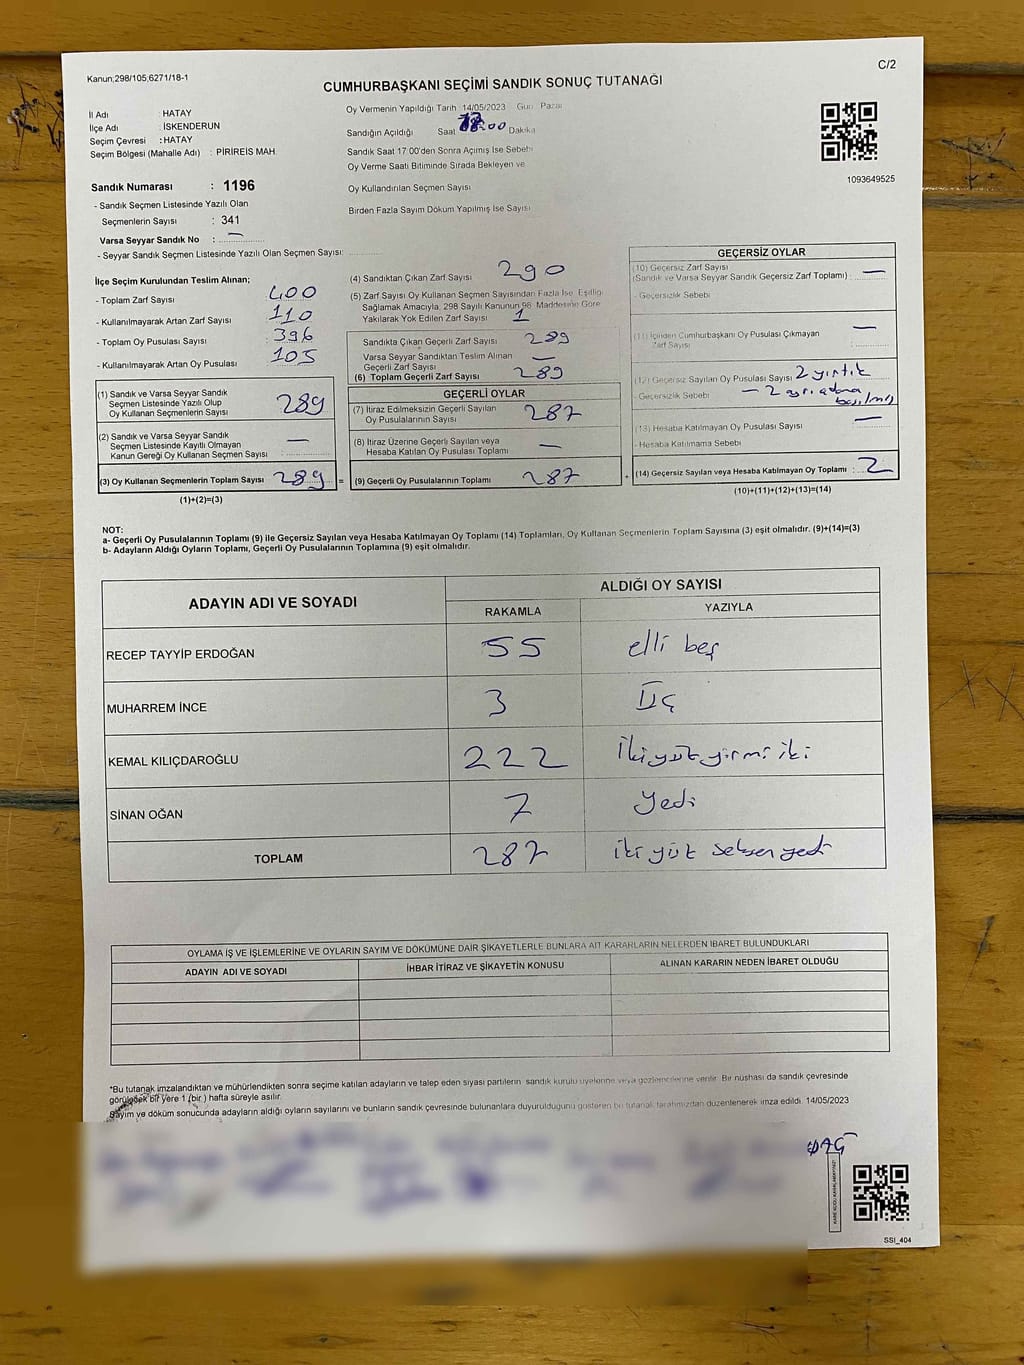 Kanun;298/105;6271/18-1
C/2
CUMHURBAŞKANI SEÇİMİ SANDIK SONUÇ TUTANAĞI
İl Adı : HATAY
İlçe Adı : İSKENDERUN
Seçim Çevresi : HATAY
Seçim Bölgesi (Mahalle Adı) : PİRİREİS MAH.
Sandık Numarası : 1196
- Sandık Seçmen Listesinde Yazılı Olan
Seçmenlerin Sayısı : 341
Varsa Seyyar Sandık No : —
- Seyyar Sandık Seçmen Listesinde Yazılı Olan Seçmen Sayısı:
Oy Vermenin Yapıldığı Tarih 14/05/2023 Gün Pazar
Sandığın Açıldığı Saat :00 Dakika
Sandık Saat 17:00'den Sonra Açımış İse Sebebi
Oy Verme Saati Bitiminde Sırada Bekleyen ve
Oy Kullandırılan Seçmen Sayısı
Birden Fazla Sayım Döküm Yapılmış İse Sayısı
1093649525
İlçe Seçim Kurulundan Teslim Alınan;
- Toplam Zarf Sayısı 400
- Kullanılmayarak Artan Zarf Sayısı : 110
- Toplam Oy Pusulası Sayısı : 396
- Kullanılmayarak Artan Oy Pusulası 105
(1) Sandık ve Varsa Seyyar Sandık
Seçmen Listesinde Yazılı Olup
Oy Kullanan Seçmenlerin Sayısı 289
(2) Sandık ve Varsa Seyyar Sandık
Seçmen Listesinde Kayıtlı Olmayan
Kanun Gereği Oy Kullanan Seçmen Sayısı : —
(3) Oy Kullanan Seçmenlerin Toplam Sayısı 289
(1)+(2)=(3)
(4) Sandıktan Çıkan Zarf Sayısı 290
(5) Zarf Sayısı Oy Kullanan Seçmen Sayısından Fazla İse, Eşitliği
Sağlamak Amacıyla, 298 Sayılı Kanunun 98. Maddesine Göre
Yakılarak Yok Edilen Zarf Sayısı 1
Sandıkta Çıkan Geçerli Zarf Sayısı 289
Varsa Seyyar Sandıktan Teslim Alınan
Geçerli Zarf Sayısı —
(6) Toplam Geçerli Zarf Sayısı 289
GEÇERLİ OYLAR
(7) İtiraz Edilmeksizin Geçerli Sayılan
Oy Pusulalarının Sayısı 287
(8) İtiraz Üzerine Geçerli Sayılan veya
Hesaba Katılan Oy Pusulası Toplamı —
= (9) Geçerli Oy Pusulalarının Toplamı 287
GEÇERSİZ OYLAR
(10) Geçersiz Zarf Sayısı
(Sandık ve Varsa Seyyar Sandık Geçersiz Zarf Toplamı) —
- Geçersizlik Sebebi
(11) İçinden Cumhurbaşkanı Oy Pusulası Çıkmayan
Zarf Sayısı —
(12) Geçersiz Sayılan Oy Pusulası Sayısı 2 yırtık
- Geçersizlik Sebebi — 2 ayrı adaya
basılmış
(13) Hesaba Katılmayan Oy Pusulası Sayısı —
- Hesaba Katılmama Sebebi
+ (14) Geçersiz Sayılan veya Hesaba Katılmayan Oy Toplamı : 2
(10)+(11)+(12)+(13)=(14)
NOT:
a- Geçerli Oy Pusulalarının Toplamı (9) ile Geçersiz Sayılan veya Hesaba Katılmayan Oy Toplamı (14) Toplamları, Oy Kullanan Seçmenlerin Toplam Sayısına (3) eşit olmalıdır. (9)+(14)=(3)
b- Adayların Aldığı Oyların Toplamı, Geçerli Oy Pusulalarının Toplamına (9) eşit olmalıdır.
ADAYIN ADI VE SOYADI ALDIĞI OY SAYISI
RAKAMLA YAZIYLA
RECEP TAYYİP ERDOĞAN 55 elli beş
MUHARREM İNCE 3 Üç
KEMAL KILIÇDAROĞLU 222 İkiyüzyirmi iki
SİNAN OĞAN 7 Yedi
TOPLAM 287 iki yüz seksen yedi
OYLAMA İŞ VE İŞLEMLERİNE VE OYLARIN SAYIM VE DÖKÜMÜNE DAİR ŞİKAYETLERLE BUNLARA AİT KARARLARIN NELERDEN İBARET BULUNDUKLARI
ADAYIN ADI VE SOYADI İHBAR İTİRAZ VE ŞİKAYETİN KONUSU ALINAN KARARIN NEDEN İBARET OLDUĞU
*Bu tutanak imzalandıktan ve mühürlendikten sonra seçime katılan adayların ve talep eden siyasi partilerin sandık kurulu üyelerine veya gözlemcilerine verilir. Bir nüshası da sandık çevresinde
görülecek bir yere 1 (bir ) hafta süreyle asılır.
Sayım ve döküm sonucunda adayların aldığı oyların sayılarını ve bunların sandık çevresinde bulunanlara duyurulduğunu gösteren bu tutanak tarafımızdan düzenlenerek imza edildi. 14/05/2023
SSI_404